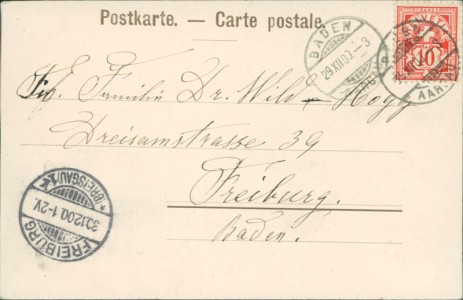 Postkarte. — Carte postale.
BADEN
29.XII.00.—3
HELVETIA
10
AAR
Familie Dr. Wild-Hogg
Dreisamstrasse 39
Freiburg.
Baden.
FREIBURG
30.12.00.1-2V.
*(BREISGAU)1*